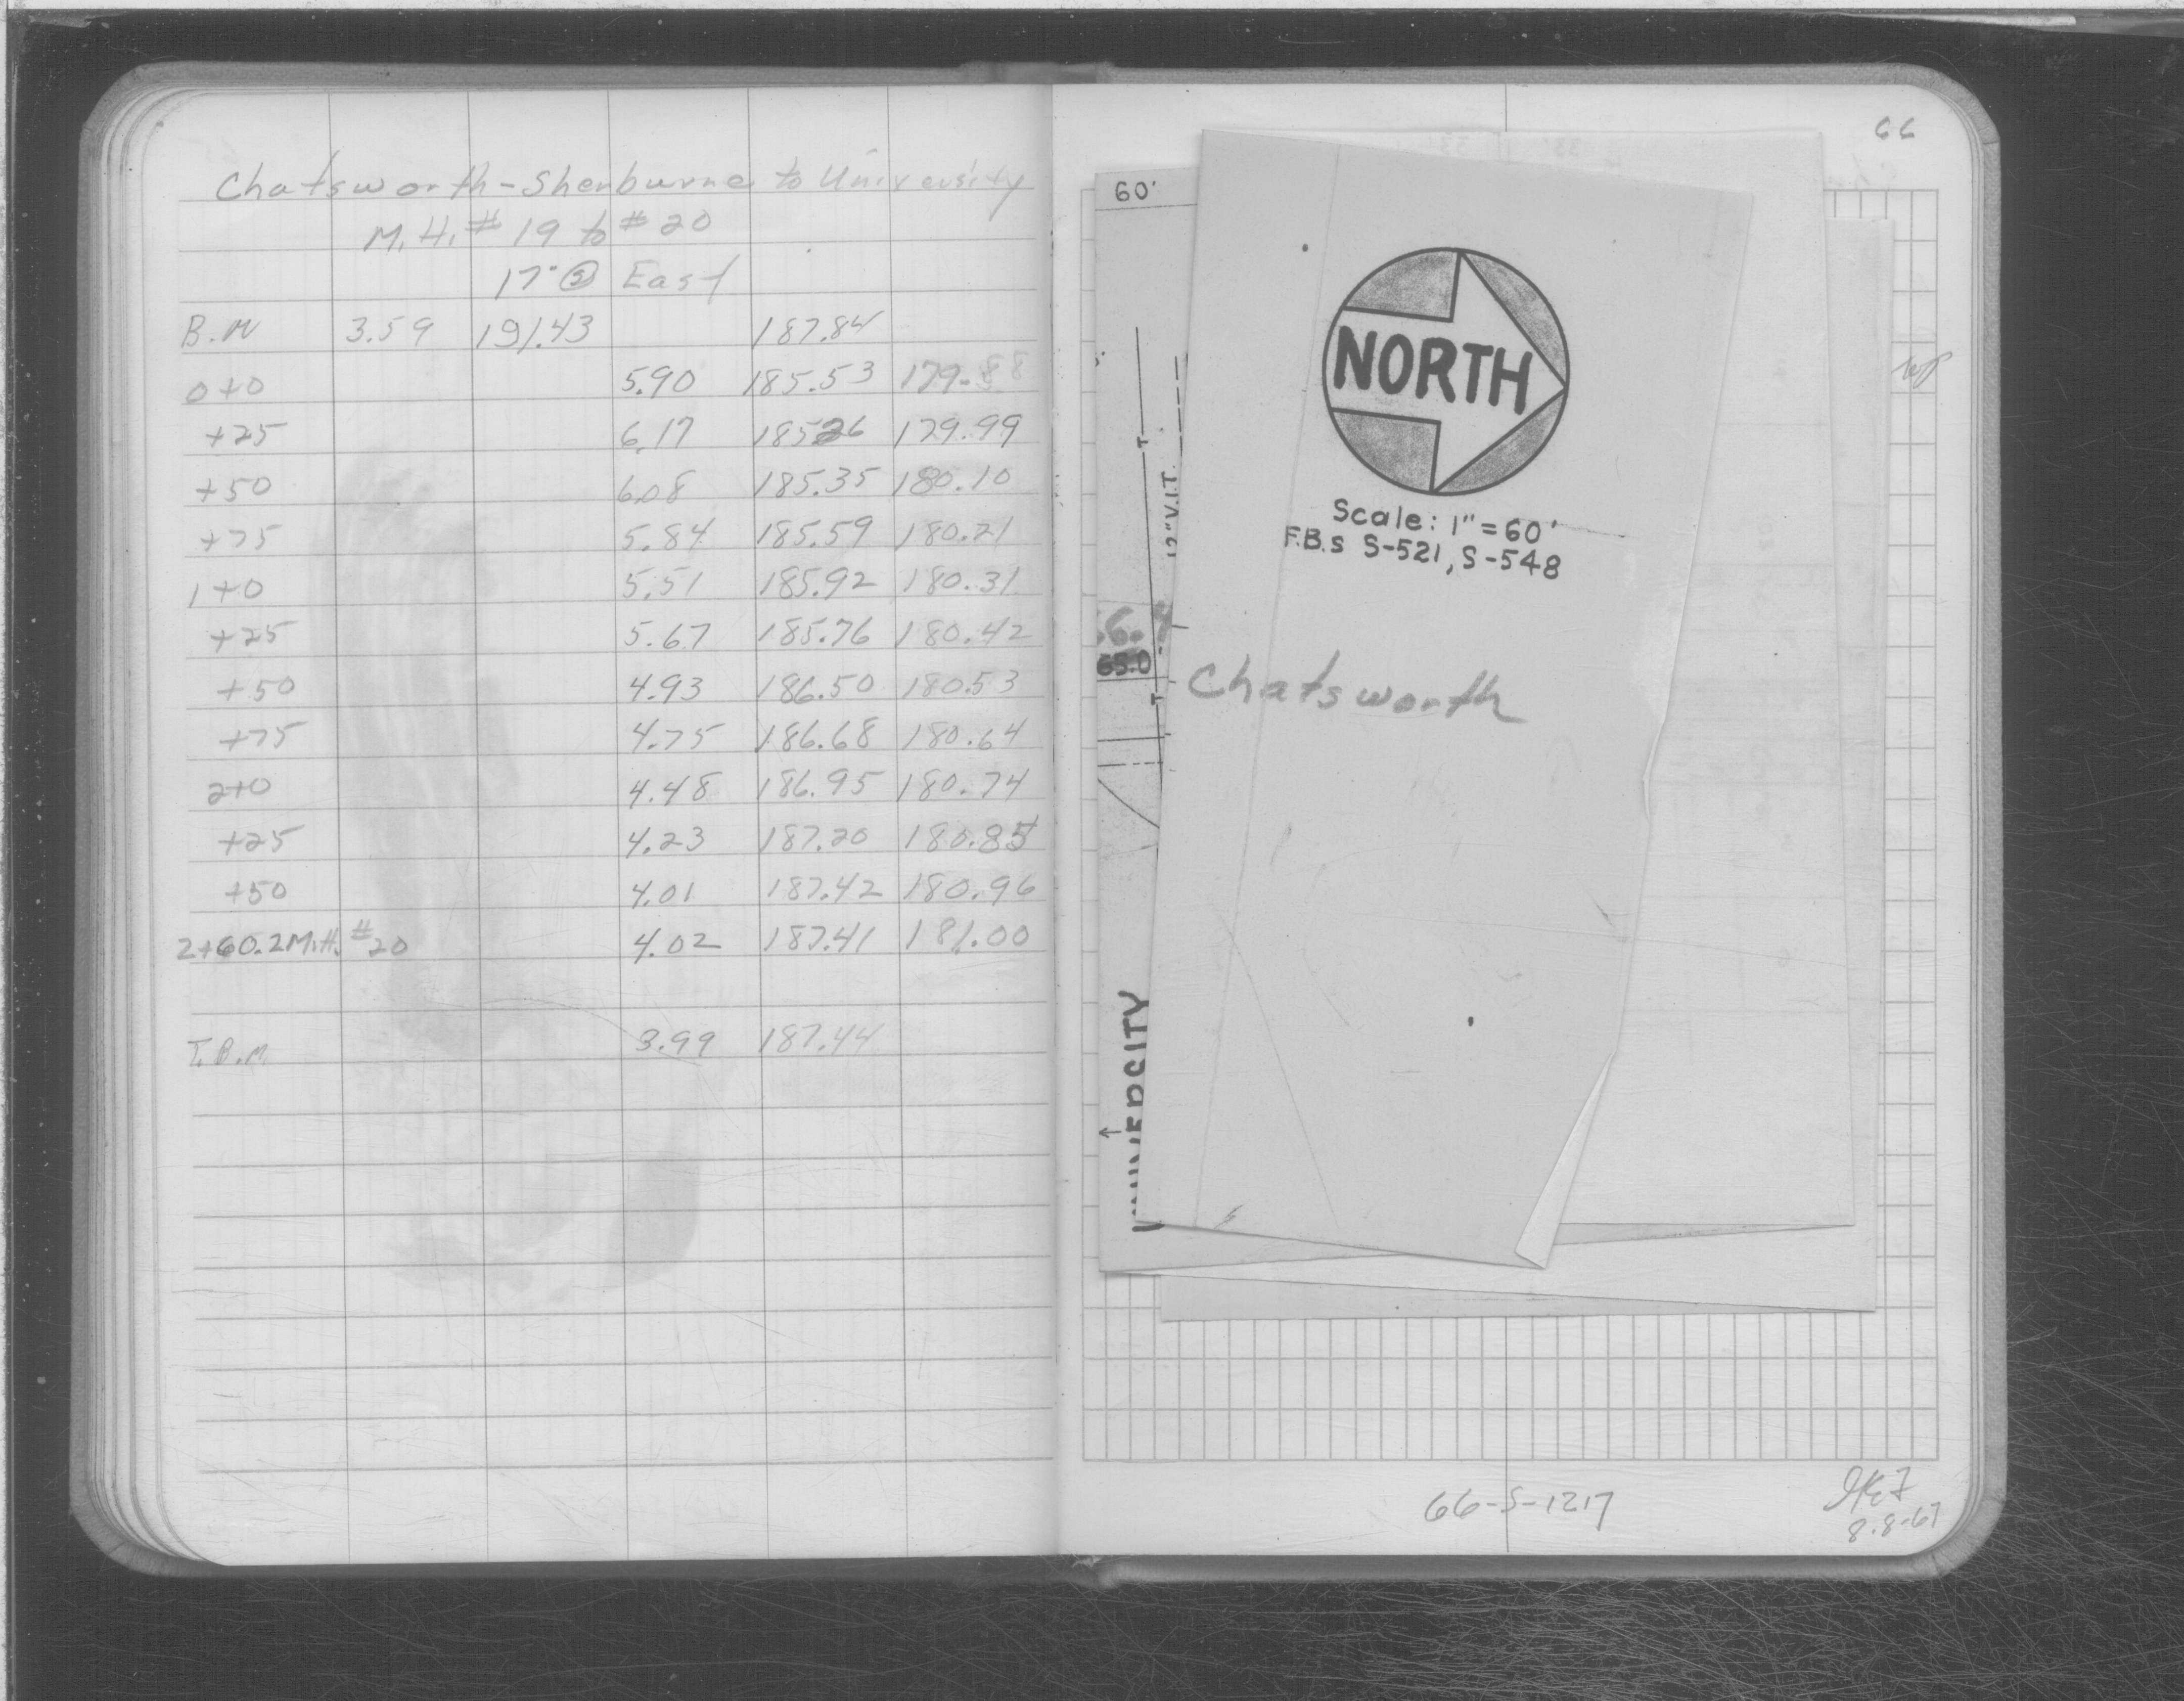 Chatsworth - Sherburne to University
M.H. # 19 to # 20
17" @ East
B.M 3.59 191.43 187.84
0+0 5.90 185.53 179.88
+25 6.17 185.26 179.99
+50 6.08 185.35 180.10
+75 5.84 185.59 180.21
1+0 5.51 185.92 180.31
+25 5.67 185.76 180.42
+50 4.93 186.50 180.53
+75 4.75 186.68 180.64
2+0 4.48 186.95 180.74
+25 4.23 187.20 180.85
+50 4.01 187.42 180.96
2+60.2 M.H. #20 4.02 187.41 181.00
T.B.M. 3.99 187.44
66
60'
NORTH
Scale: 1" = 60'
F.B.s S-521, S-548
T
12" V.I.T.
65.0
T
Chatsworth
UNIVERSITY
66-S-1217
8-8-67